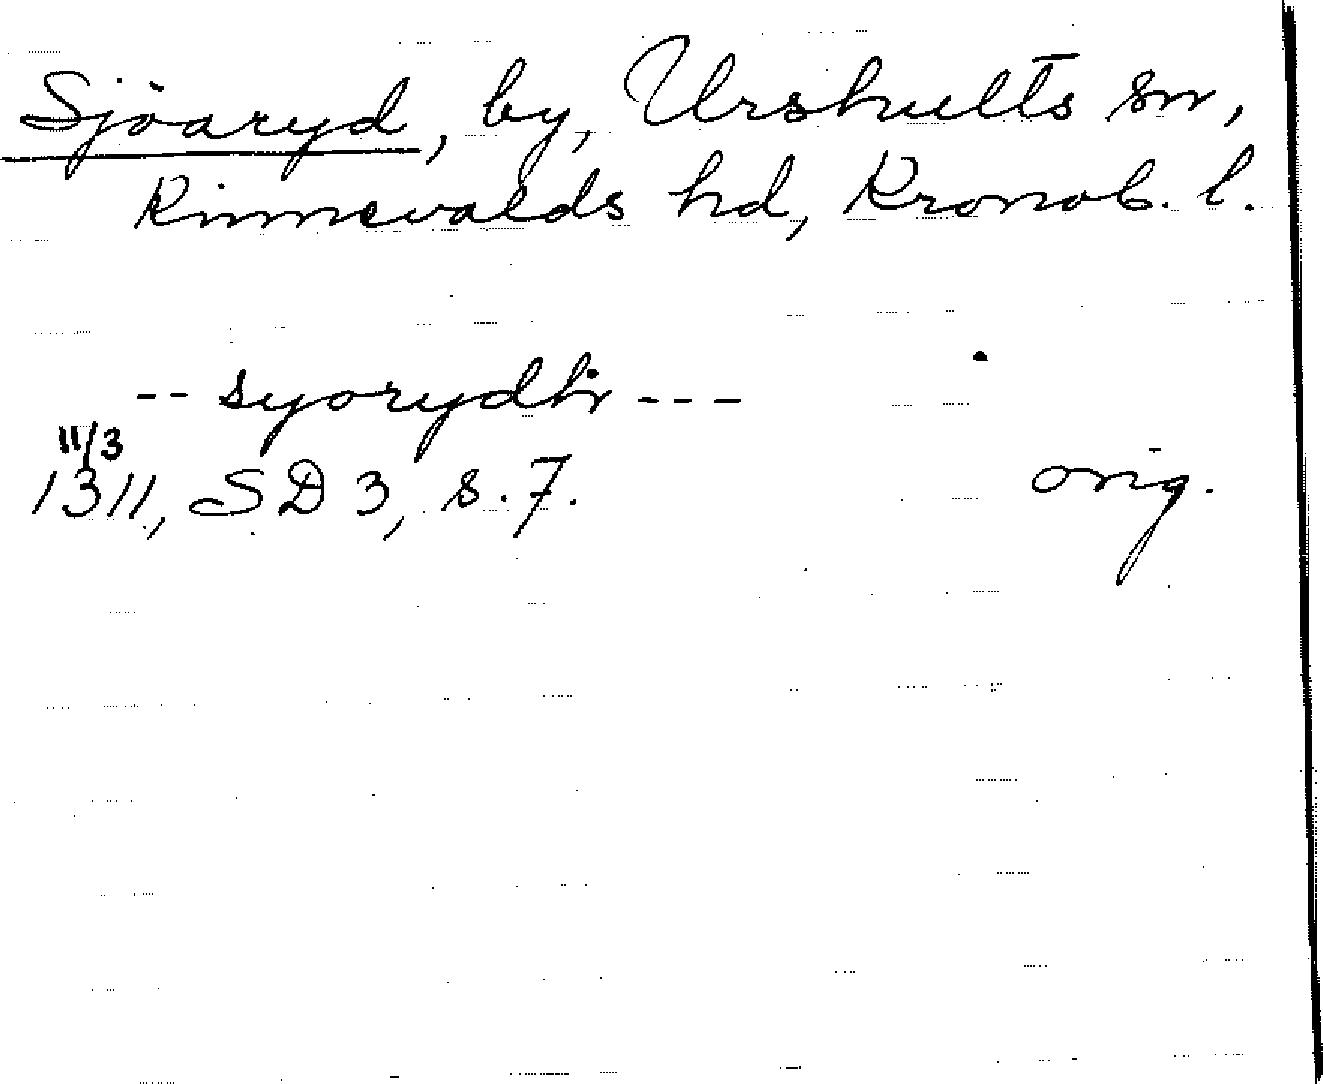 Sjöaryd, by, Urshults sn,
Kinnevalds hd, Kronob. l.
-- syorydhr ---
11/3
1311, SD 3, s. 7.
orig.